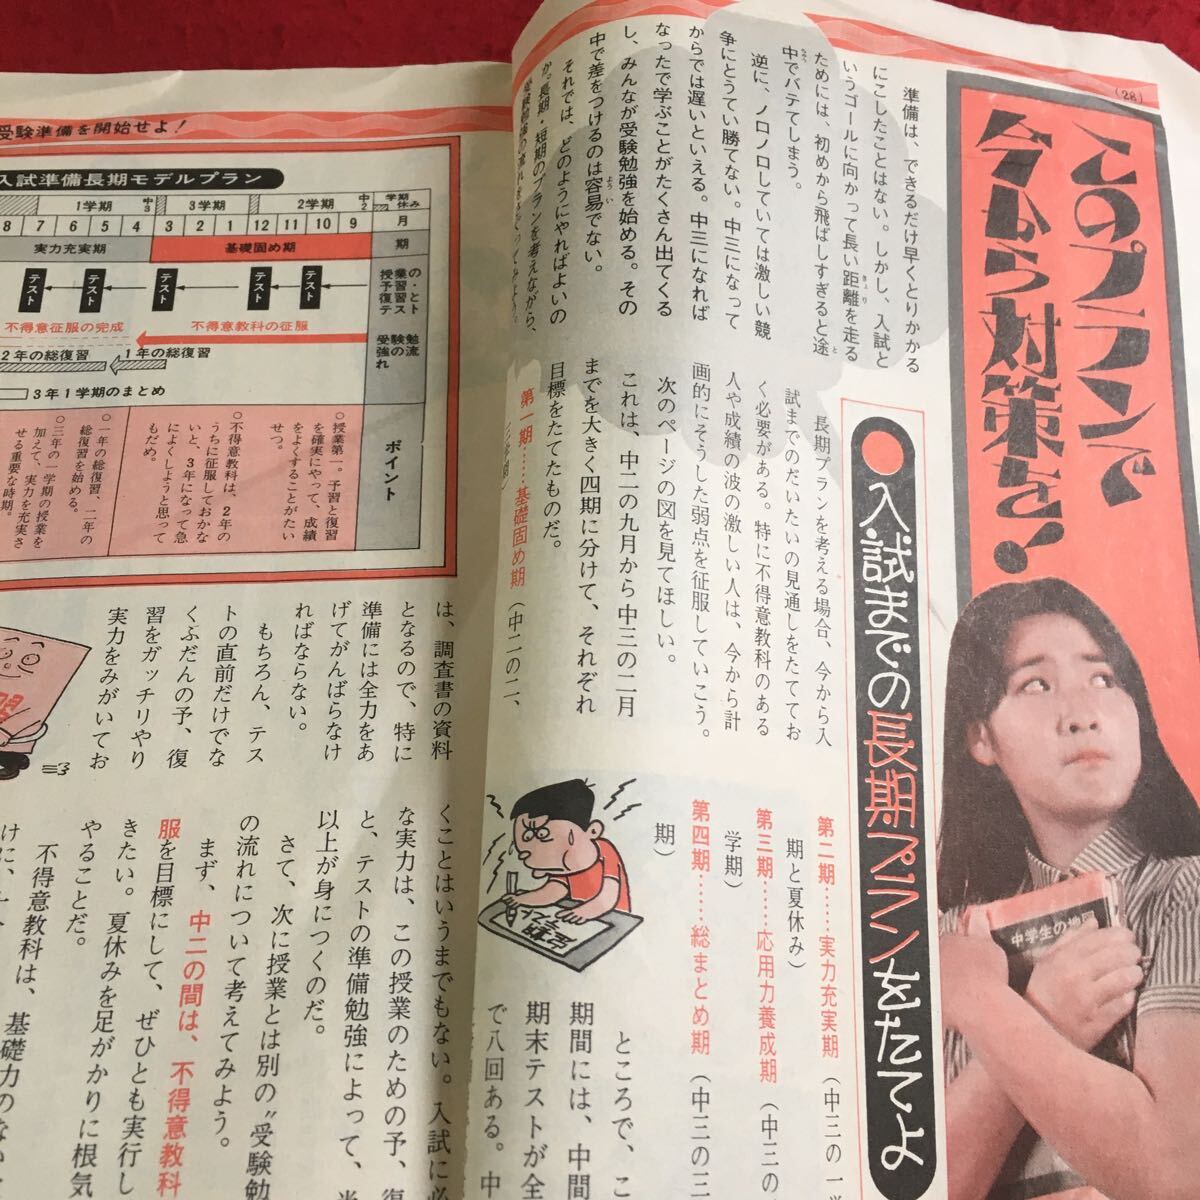 (28)
このプランで
今から対策を!
入試までの長期プランをたてよ
中学生の地図
準備は、できるだけ早くとりかかる
にこしたことはない。しかし、入試と
いうゴールに向かって長い距離を走る
ためには、初めから飛ばしすぎると途
中でバテてしまう。
逆に、ノロノロしていては激しい競
争にとうてい勝てない。中三になって
からでは遅いといえる。中三になれば
なったで学ぶことがたくさん出てくる
し、みんなが受験勉強を始める。その
中で差をつけるのは容易でない。
それでは、どのようにやればよいの
か。長期・短期のプランを考えながら、
長期プランを考える場合、今から入
試までのだいたいの見通しをたててお
く必要がある。特に不得意教科のある
人や成績の波の激しい人は、今から計
画的にそうした弱点を征服していこう。
次のページの図を見てほしい。
これは、中二の九月から中三の二月
までを大きく四期に分けて、それぞれ
目標をたてたものだ。
第一期……基礎固め期(中二の二、
第二期……実力充実期(中三の一学
期と夏休み)
第三期……応用力養成期(中三の
学期)
第四期……総まとめ期(中三の三
期)
定期テスト
ところで、こ
期間には、中間
期末テストが全
で八回ある。中
受験準備を開始せよ!
入試準備長期モデルプラン
1学期 中3 3学期 2学期 中2 学期 休み
8 7 6 5 4 3 2 1 12 11 10 9 月
実力充実期 基礎固め期 期
テスト テスト テスト テスト テスト
授業の予習・復習とテスト
不得意征服の完成 不得意教科の征服
受験勉強の流れ
2年の総復習 1年の総復習
3年1学期のまとめ
ポイント
○授業第一。予習と復習
を確実にやって、成績
をよくすることがたい
せつ。
○不得意教科は、2年の
うちに征服しておかな
いと、3年になって急
によくしようと思って
もだめ。
○一年の総復習、二年の
総復習を始める。
○三年の一学期の授業を
加えて、実力を充実さ
せる重要な時期。
は、調査書の資料
となるので、特に
準備には全力をあ
げてがんばらなけ
ればならない。
もちろん、テス
トの直前だけでな
くふだんの予、復
習をガッチリやり
実力をみがいてお
くことはいうまでもない。入試に必
な実力は、この授業のための予、復
と、テストの準備勉強によって、半
以上が身につくのだ。
さて、次に授業とは別の“受験勉
の流れについて考えてみよう。
まず、中二の間は、不得意教科
服を目標にして、ぜひとも実行し
きたい。夏休みを足がかりに根気
やることだ。
不得意教科は、基礎力のない